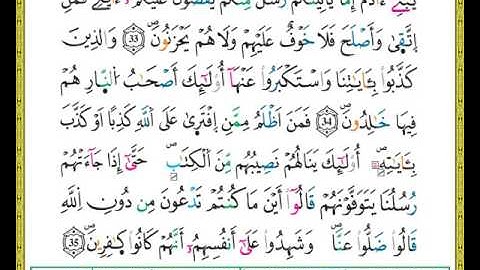 يَٰبَنِےٓ ءَادَمَ إِمَّا يَاتِيَنَّكُمْ رُسُلٌ مِّنكُمْ يَقُصُّونَ عَلَيْكُمُۥٓ ءَايَٰتِے فَمَنِ
إِتَّقٜىٰ وَأَصْلَحَ فَلَا خَوْفٌ عَلَيْهِمْ وَلَا هُمْ يَحْزَنُونَۖ 33 وَالذِينَ
كَذَّبُواْ بِـَٔايَٰتِنَا وَاسْتَكْبَرُواْ عَنْهَآ أُوْلَٰٓئِكَ أَصْحَٰبُ النّ۪ارِ هُمْ
فِيهَا خَٰلِدُونَۖ 34 فَمَنَ اَظْلَمُ مِمَّنِ إِفْتَر۪ىٰ عَلَى اَللَّهِ كَذِبًا اَوْ كَذَّبَ
بِـَٔايَٰتِهِۦٓۖ أُوْلَٰٓئِكَ يَنَالُهُمْ نَصِيبُهُم مِّنَ اَلْكِتَٰبِۖ حَتَّىٰٓ إِذَا جَآءَتْهُمْ
رُسُلُنَا يَتَوَفَّوْنَهُمْ قَالُوٓاْ أَيْنَ مَا كُنتُمْ تَدْعُونَ مِن دُونِ اِللَّهِ
قَالُواْ ضَلُّواْ عَنَّاۖ وَشَهِدُواْ عَلَىٰٓ أَنفُسِهِمُۥٓ أَنَّهُمْ كَانُواْ كٜ۪فِرِينَۖ 35